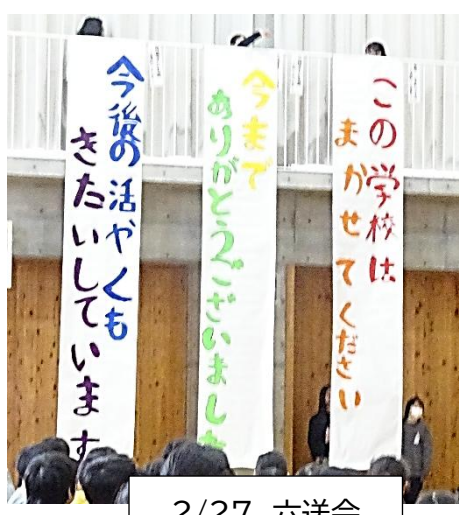 この学校は
まかせてください
今まで
ありがとうございました
今後の活やくも
きたいしています
2/27 六送会